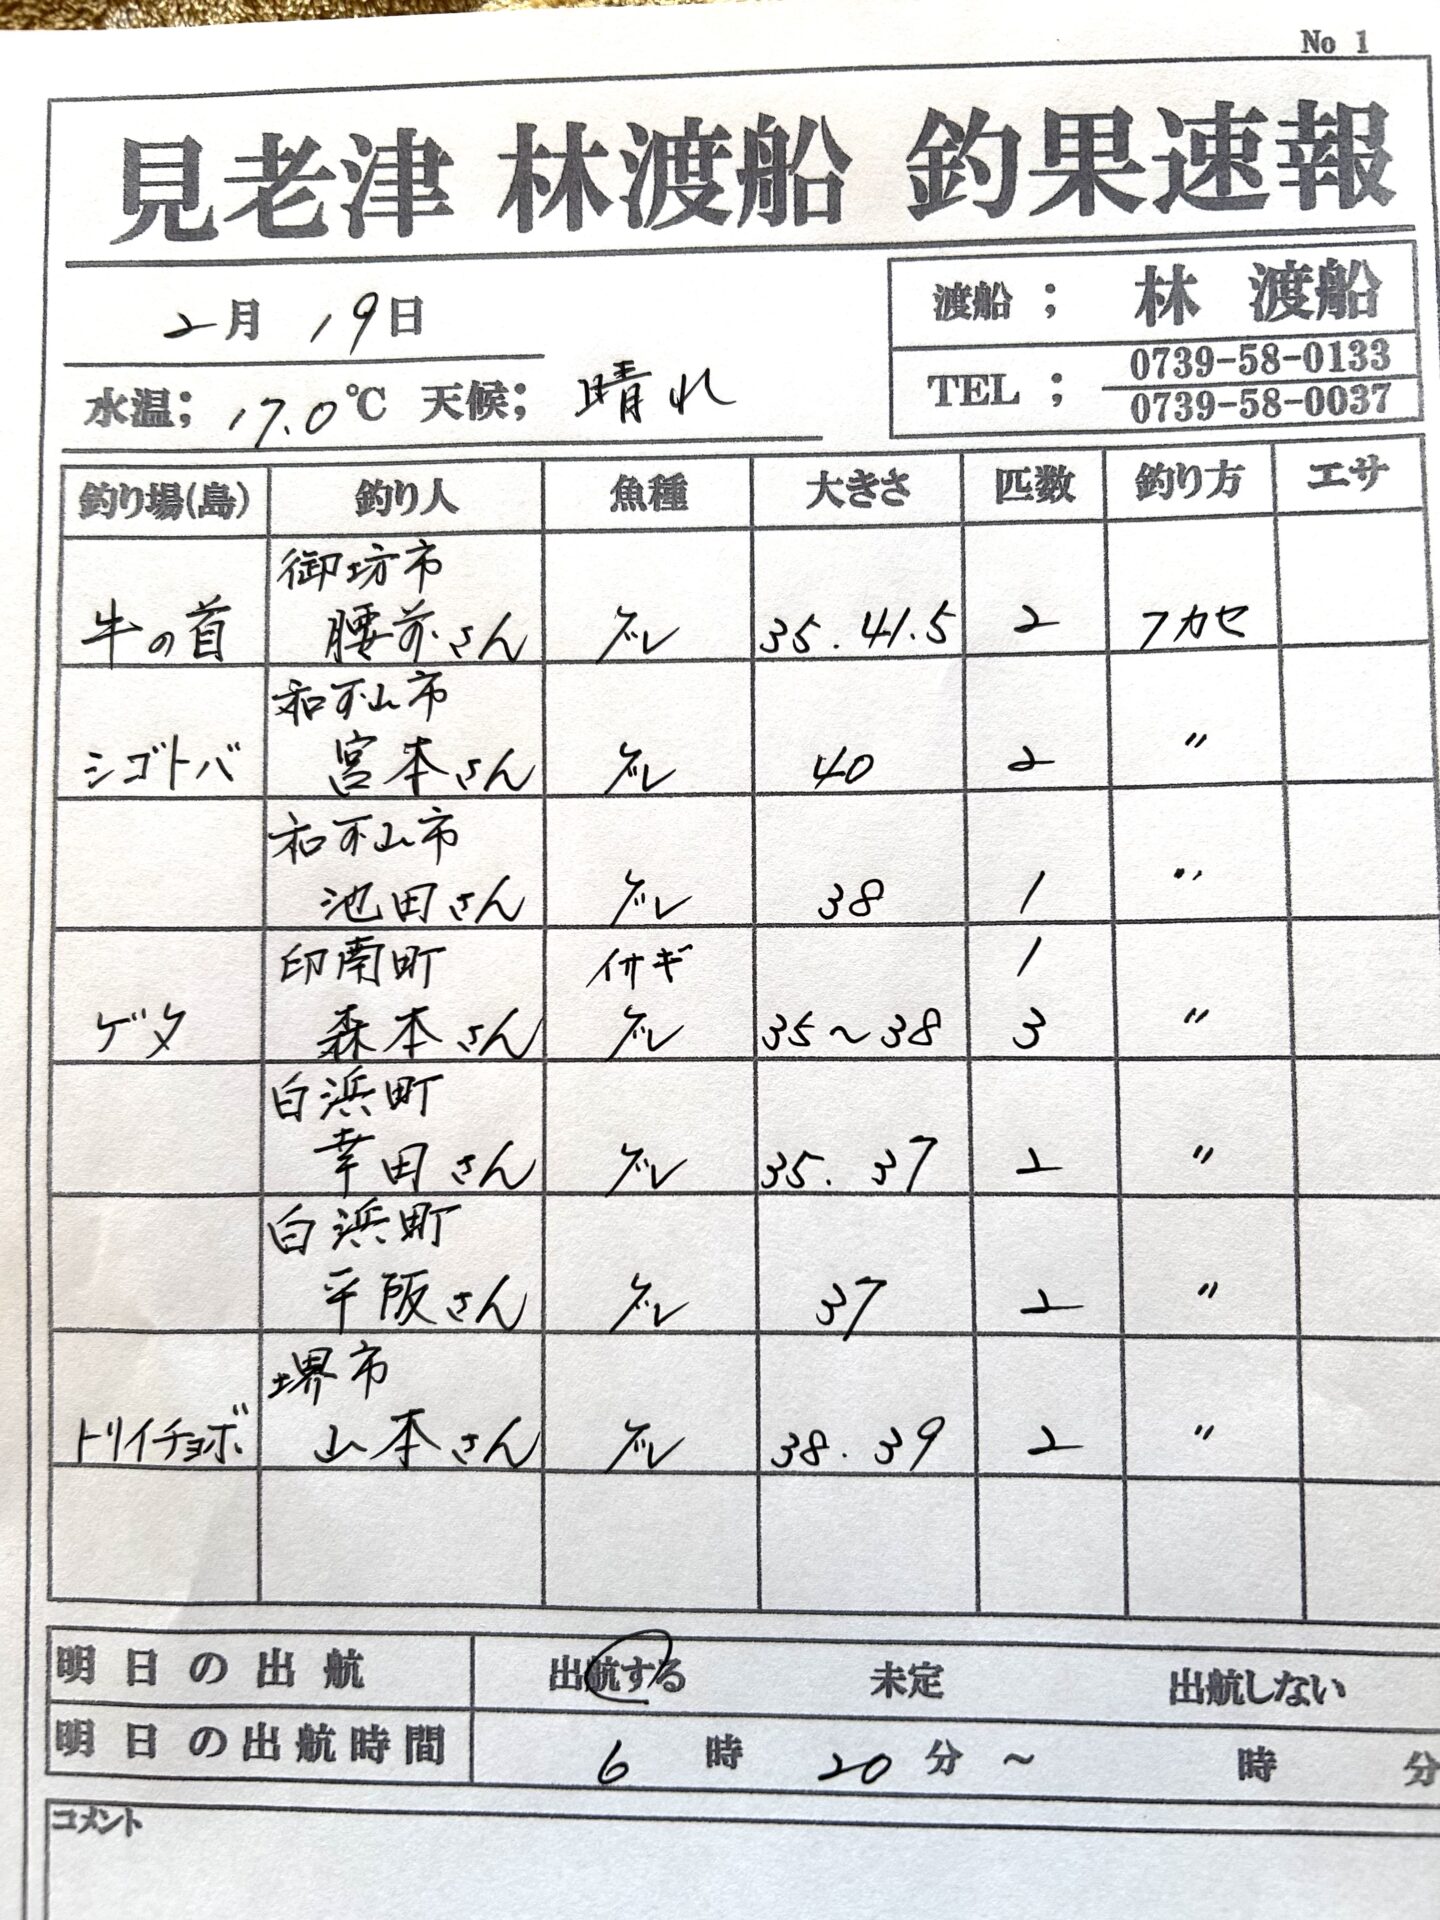 No 1
見老津 林渡船 釣果速報
2月 19日
渡船 ; 林 渡船
TEL ; 0739-58-0133
0739-58-0037
水温; 17.0℃ 天候; 晴れ
釣り場(島) 釣り人 魚種 大きさ 匹数 釣り方 エサ
御坊市
牛の首 腰前さん グレ 35.41.5 2 フカセ
和歌山市
シゴトバ 宮本さん グレ 40 2 〃
和歌山市
池田さん グレ 38 1 〃
印南町 イサギ 1
ゲタ 森本さん グレ 35〜38 3 〃
白浜町
幸田さん グレ 35.37 2 〃
白浜町
平阪さん グレ 37 2 〃
堺市
トリイチョボ 山本さん グレ 38.39 2 〃
明日の出航 出航する 未定 出航しない
明日の出航時間 6 時 20 分 〜 時 分
コメント